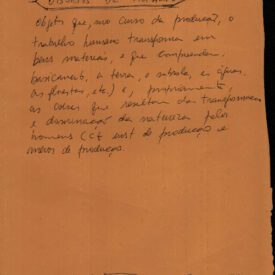 OBJETOS DE TRABALHO
objetos que, no curso da produção, o
trabalho humano transforma em
bens materiais, e que compreendem,
basicamente, a terra, o subsolo, as águas,
as florestas, etc.) e, propriamente,
as coisas que resultam da transformação
e dominação da natureza pelos
homens (cf inst de produção e
meios de produção.